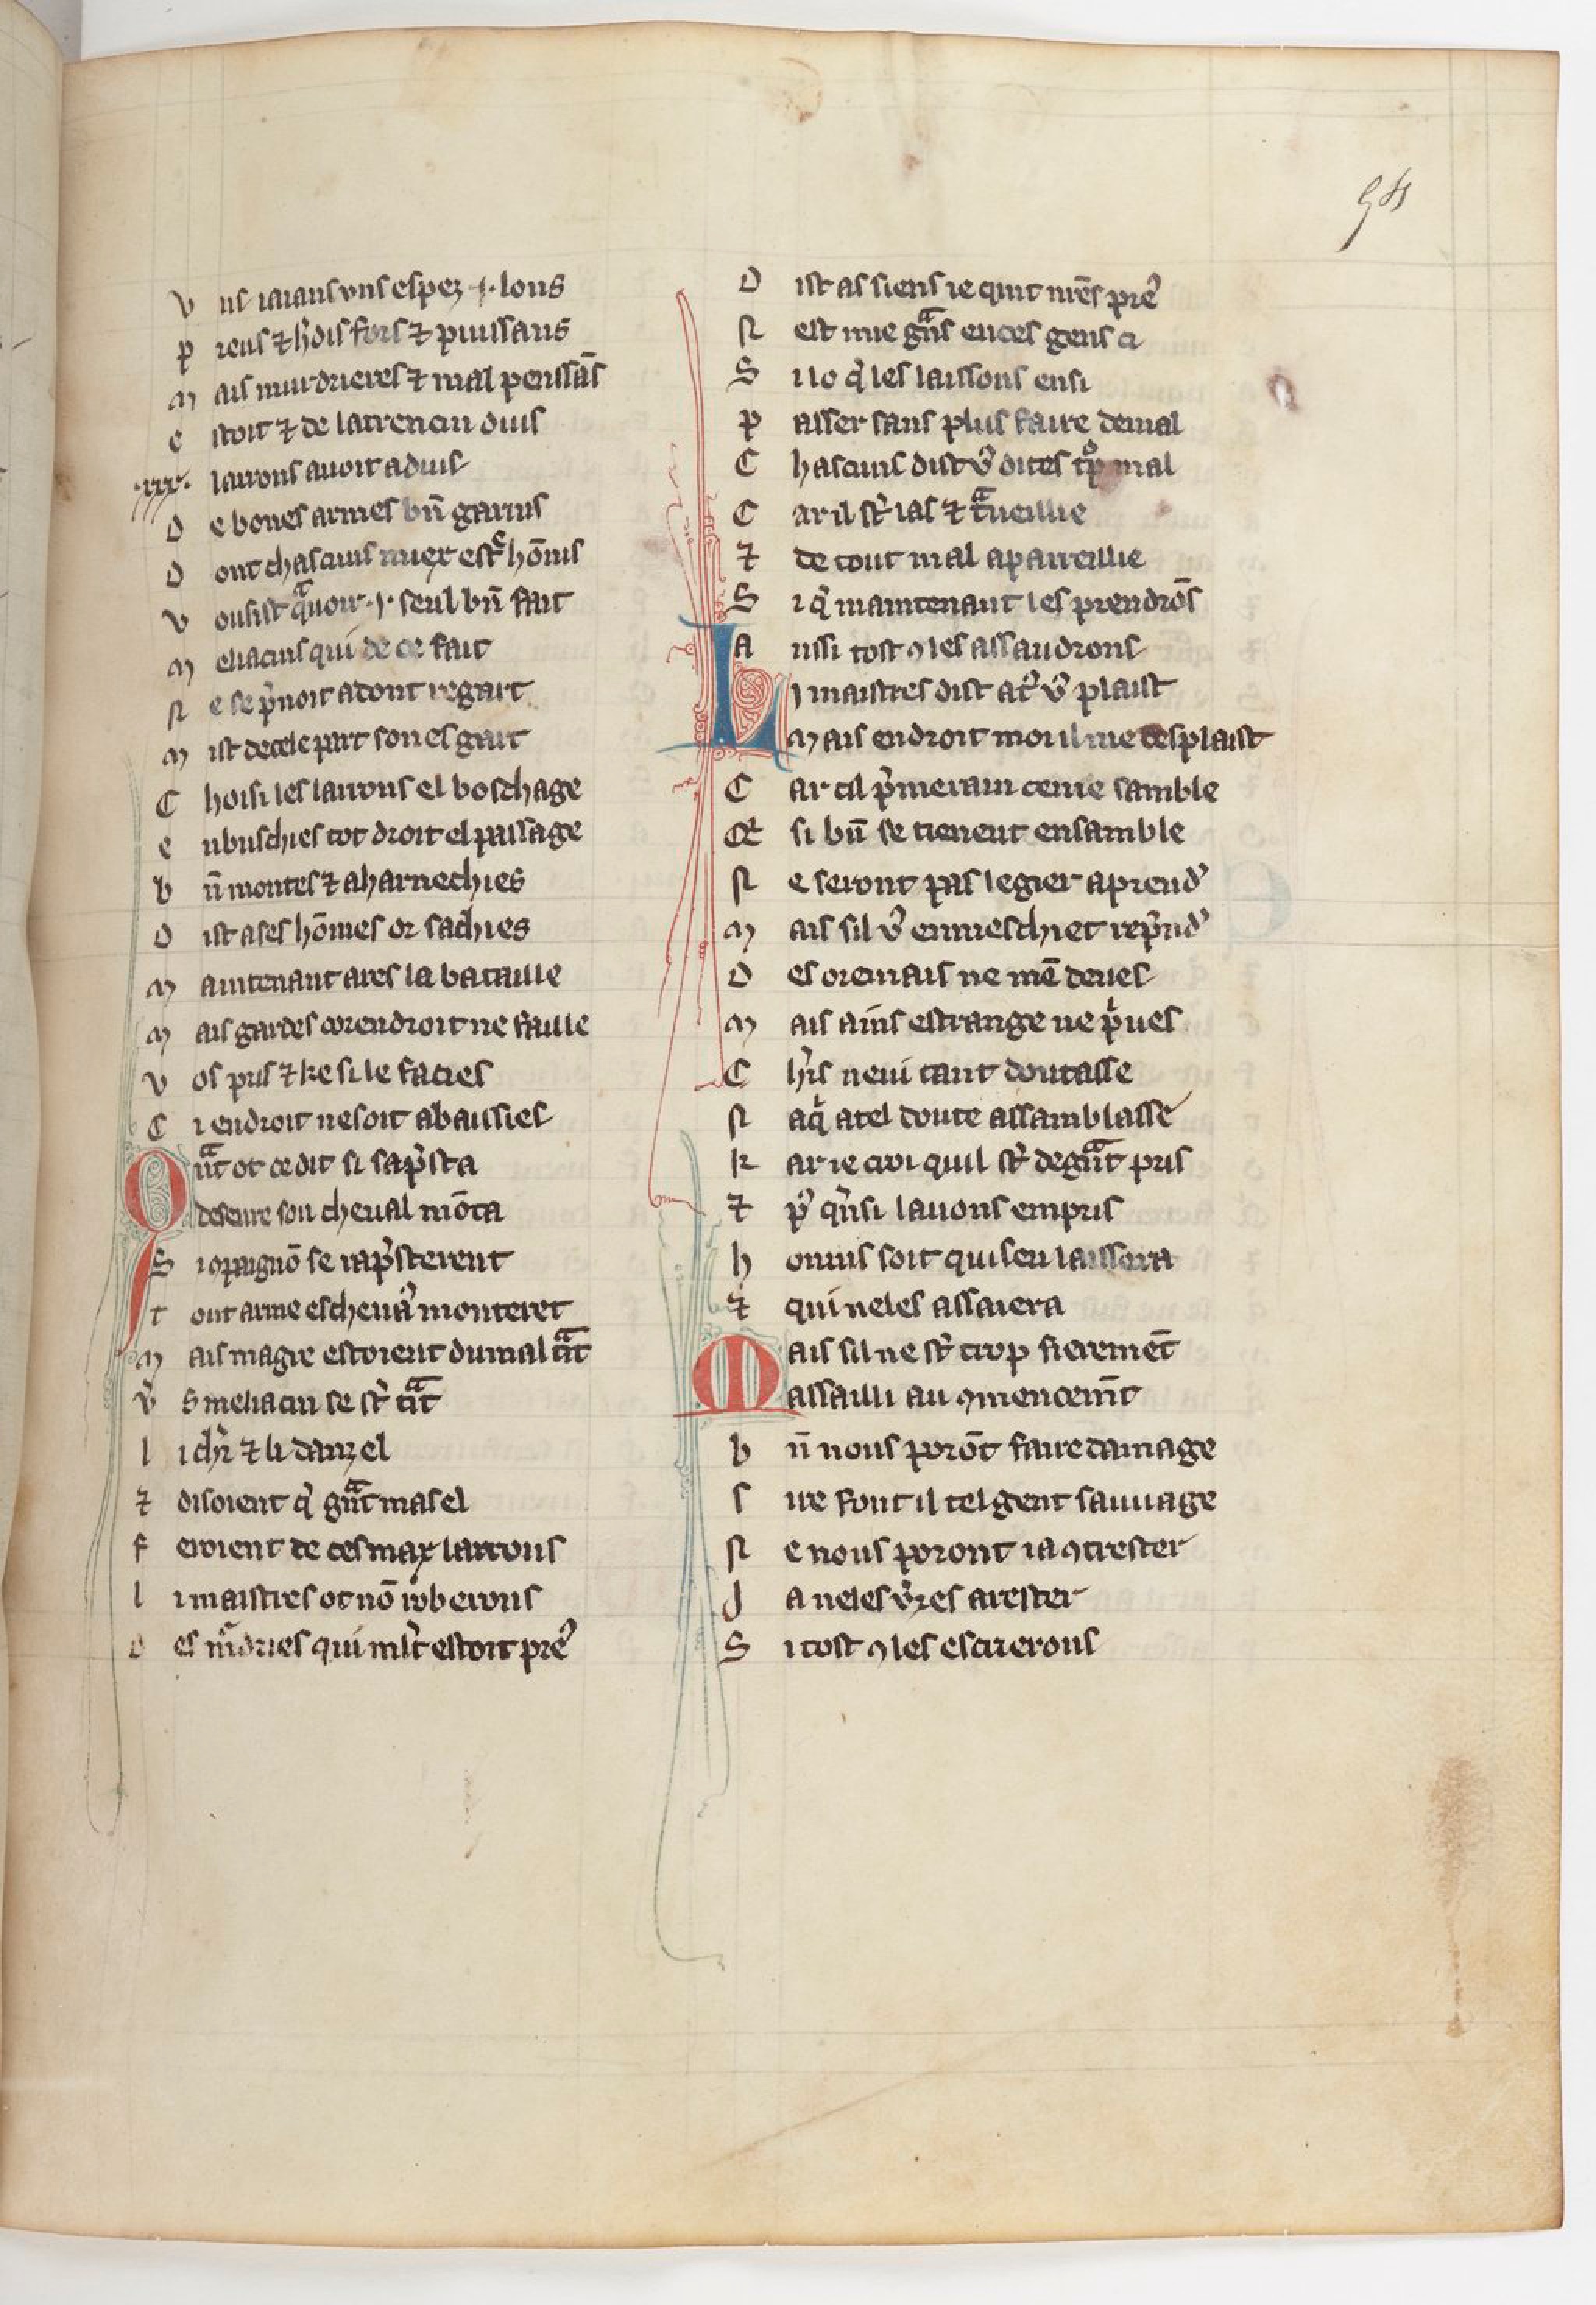 94
V ns iaians vns espez ⁊ lons
P reus ⁊ hdis fors ⁊ puissans
M ais murdrieres ⁊ mal penssās
E stoit ⁊ de larrencin duis
.xxx. larrons auoit aduis
D e bones armes bn̄ garnis
D ont chascuns miex estͤ hōnis
V ousist qᵃuoir .j. seul bn̄ fait
M eliacins qui de ce fait
N e se p̾noit adont regart
M ist decele part son esgart
C hoisi les larrons el boschage
E nbuschies tot droit el passage
B n̄ montes ⁊ aharnechies
D ist a ses hōmes or sachies
M aintenant ares la bataille
M ais gardes corendroit ne faille
V os pris ⁊ ke si le facies
C i endroit ne soit abaissies
Q nᵃt ot ce dit si sap̾sta
deseure son cheual mōta
S i ꝯpaignō se rap̾sterent
T out arme es cheuaˣ monteret
M ais magre estoient du mal tᵃit
V̾ s meliacin se st̾ tᵃit
L i chr̾ ⁊ li danzel
⁊ disoient q̾ gᵃnt masel
F eroient de ces max larrons
L i maistres ot nō roberons
D es mͥdries qui mlt̾ estoit pre᷒
D ist as siens ie quit nr̄es pre᷒
N est mie gᵃns en ces gens ci
S i lo q̾ les laissons ensi
P asser sans plus faire de mal
C hascuns dist v᷒ dites tͦp mal
C ar il st̾ las ⁊ tᵃueillie
⁊ de tout mal apareillie
S i q̾ maintenant les prendrōs
A ussi tost ꝯ les assaudrons
L i maistres dist at̾ v᷒ plaist
M ais endroit moi il me desplaist
C ar cil p̾merain ce me samble
Qͥ si bn̄ se tienent ensamble
N e seront pas legier a prend᷒
M ais sil v᷒ en meschiet rep̾nd᷒
D es oremais ne mē deues
M ais ains estrange ne p̾ues
C hr̾s ne vi tant doutasse
N a q̾ a tel doute assamblasse
K ar ie croi quil st̾ de gᵃnt pris
⁊ p᷒ qͥnsi lauons empris
H onnis soit qui sen laissera
⁊ qui ne les assaiera
M ais sil ne st̾ trop fieremēt
assailli au ꝯmencem̄t
B n̄ nous porōt faire damage
S ire font il tel gent sauuage
N e nous poront ia ꝯtrester
J a ne les v̾res arester
S i tost ꝯ les escrierons